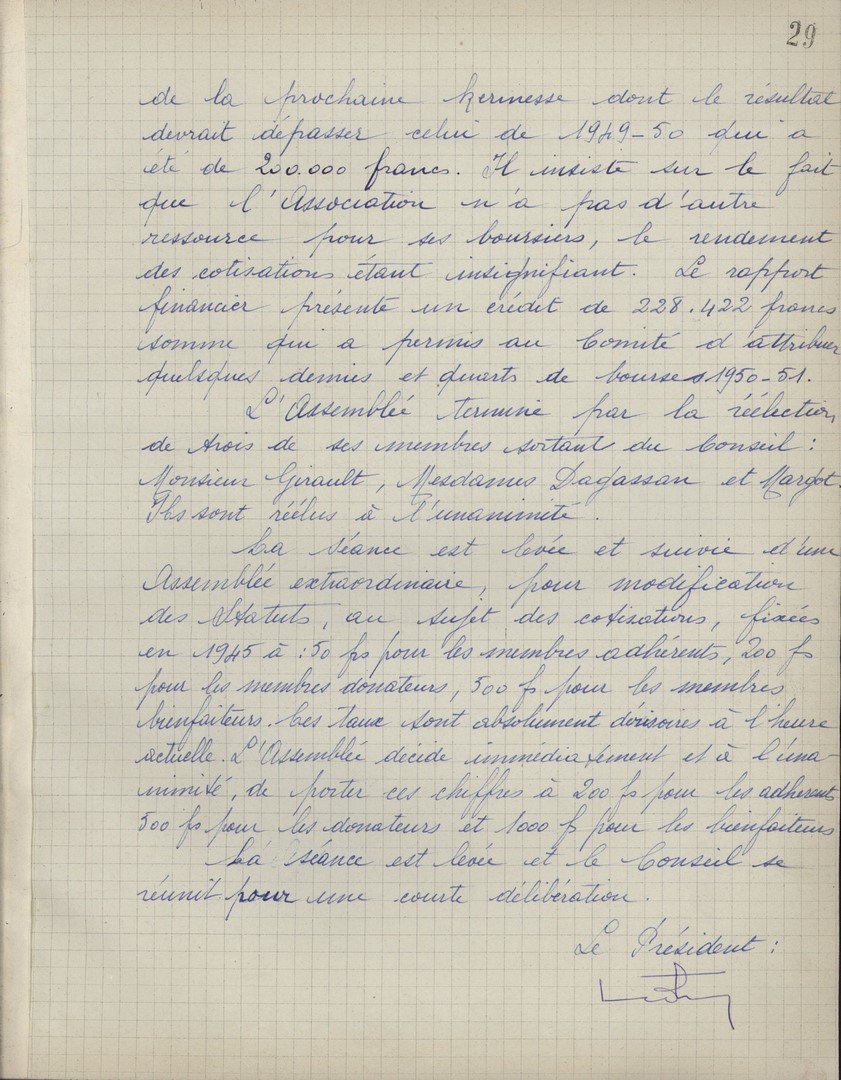 29
de la prochaine kermesse dont le résultat
devrait dépasser celui de 1949-50 qui a
été de 200.000 francs. Il insiste sur le fait
que l'Association n'a pas d'autre
ressource pour ses boursiers, le rendement
des cotisations étant insignifiant. Le rapport
financier présente un crédit de 228.422 francs
somme qui a permis au Comité d'attribuer
quelques demies et quarts de bourses 1950-51.
L'Assemblée termine par la réélection
de trois de ses membres sortant du Conseil :
Monsieur Girault, Mesdames Dagassan et Margot.
Ils sont réélus à l'unanimité.
La séance est levée et suivie d'une
Assemblée extraordinaire, pour modification
des Statuts, au sujet des cotisations, fixées
en 1945 à : 50 fs pour les membres adhérents, 200 fs
pour les membres donateurs, 500 fs pour les membres
bienfaiteurs. Ces taux sont absolument dérisoires à l'heure
actuelle. L'Assemblée décide immédiatement et à l'una-
nimité, de porter ces chiffres à 200 fs pour les adhérents
500 fs pour les donateurs et 1000 fs pour les bienfaiteurs
La séance est levée et le Conseil se
réunit pour une courte délibération.
Le Président :